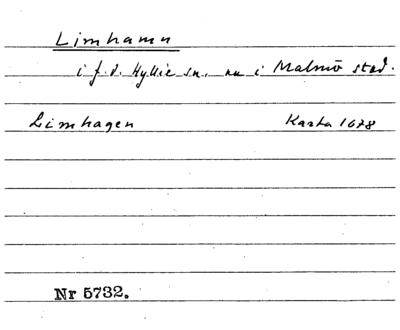 Limhamn
i f.d. Hyllie sn. nu i Malmö stad.
Limhagen Karta 1678
Nr 5732.